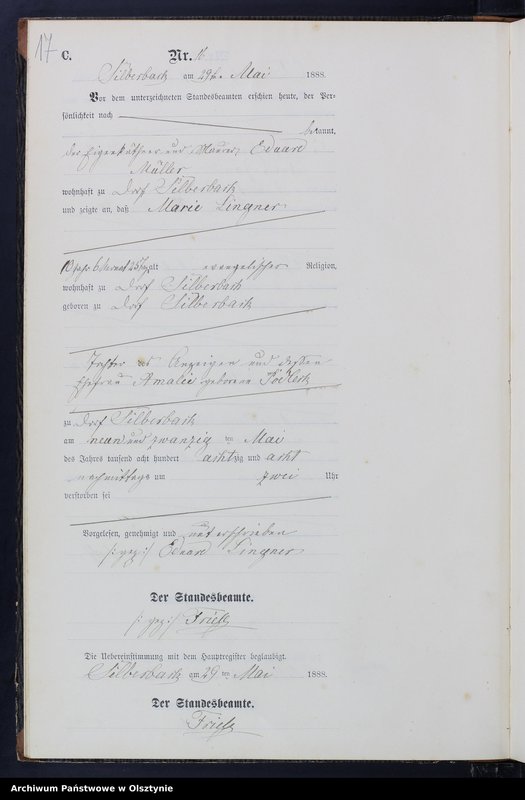 17
C.
Nr. 16
Silberbach am 29t. Mai 1888.
Vor dem unterzeichneten Standesbeamten erschien heute, der Per-
sönlichkeit nach
bekannt,
der Eigenkäthner und Maurer Eduard
Müller
wohnhaft zu Dorf Silberbach
und zeigte an, daß Marie Lingner
6 Monat 25 Tage alt evangelischer Religion,
wohnhaft zu Dorf Silberbach
geboren zu Dorf Silberbach
Tochter des Anzeigers und dessen
Ehefrau Amalie geborene
zu Dorf Silberbach
am neun und zwanzig ten Mai
des Jahres tausend acht hundert achtzig und acht
nachmittags um zwei Uhr
verstorben sei
Vorgelesen, genehmigt und unterschrieben
/: gez :/ Eduard Lingner
Der Standesbeamte.
/: gez :/ Friese
Die Uebereinstimmung mit dem Hauptregister beglaubigt.
Silberbach am 29 ten Mai 1888.
Der Standesbeamte.
Friese
Archiwum Państwowe w Olsztynie